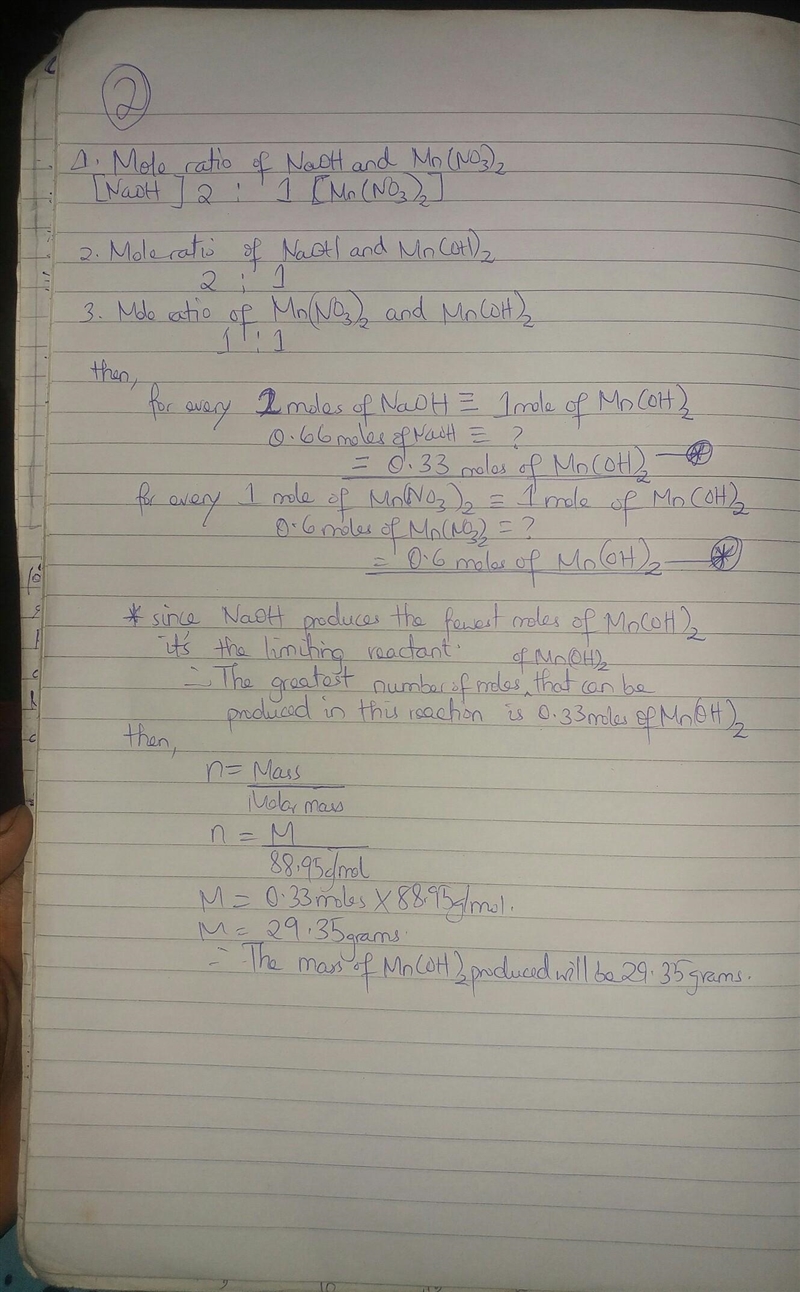 2
1. Mole ratio of NaOH and Mn(NO3)2
[NaOH] 2 : 1 [Mn(NO3)2]
2. Mole ratio of NaOH and Mn(OH)2
2 : 1
3. Mole ratio of Mn(NO3)2 and Mn(OH)2
1 : 1
then,
for every 2 moles of NaOH ≡ 1 mole of Mn(OH)2
0.66 moles of NaOH ≡ ?
= 0.33 moles of Mn(OH)2 — *
for every 1 mole of Mn(NO3)2 = 1 mole of Mn(OH)2
0.6 moles of Mn(NO3)2 = ?
= 0.6 moles of Mn(OH)2 — *
* since NaOH produces the fewest moles of Mn(OH)2
it's the limiting reactant.
∴ The greatest number of moles of Mn(OH)2 that can be
produced in this reaction is 0.33 moles of Mn(OH)2
then,
n = Mass
Molar mass
n = M
88.95g/mol
M = 0.33 moles X 88.95g/mol.
M = 29.35 grams.
∴ The mass of Mn(OH)2 produced will be 29.35 grams.